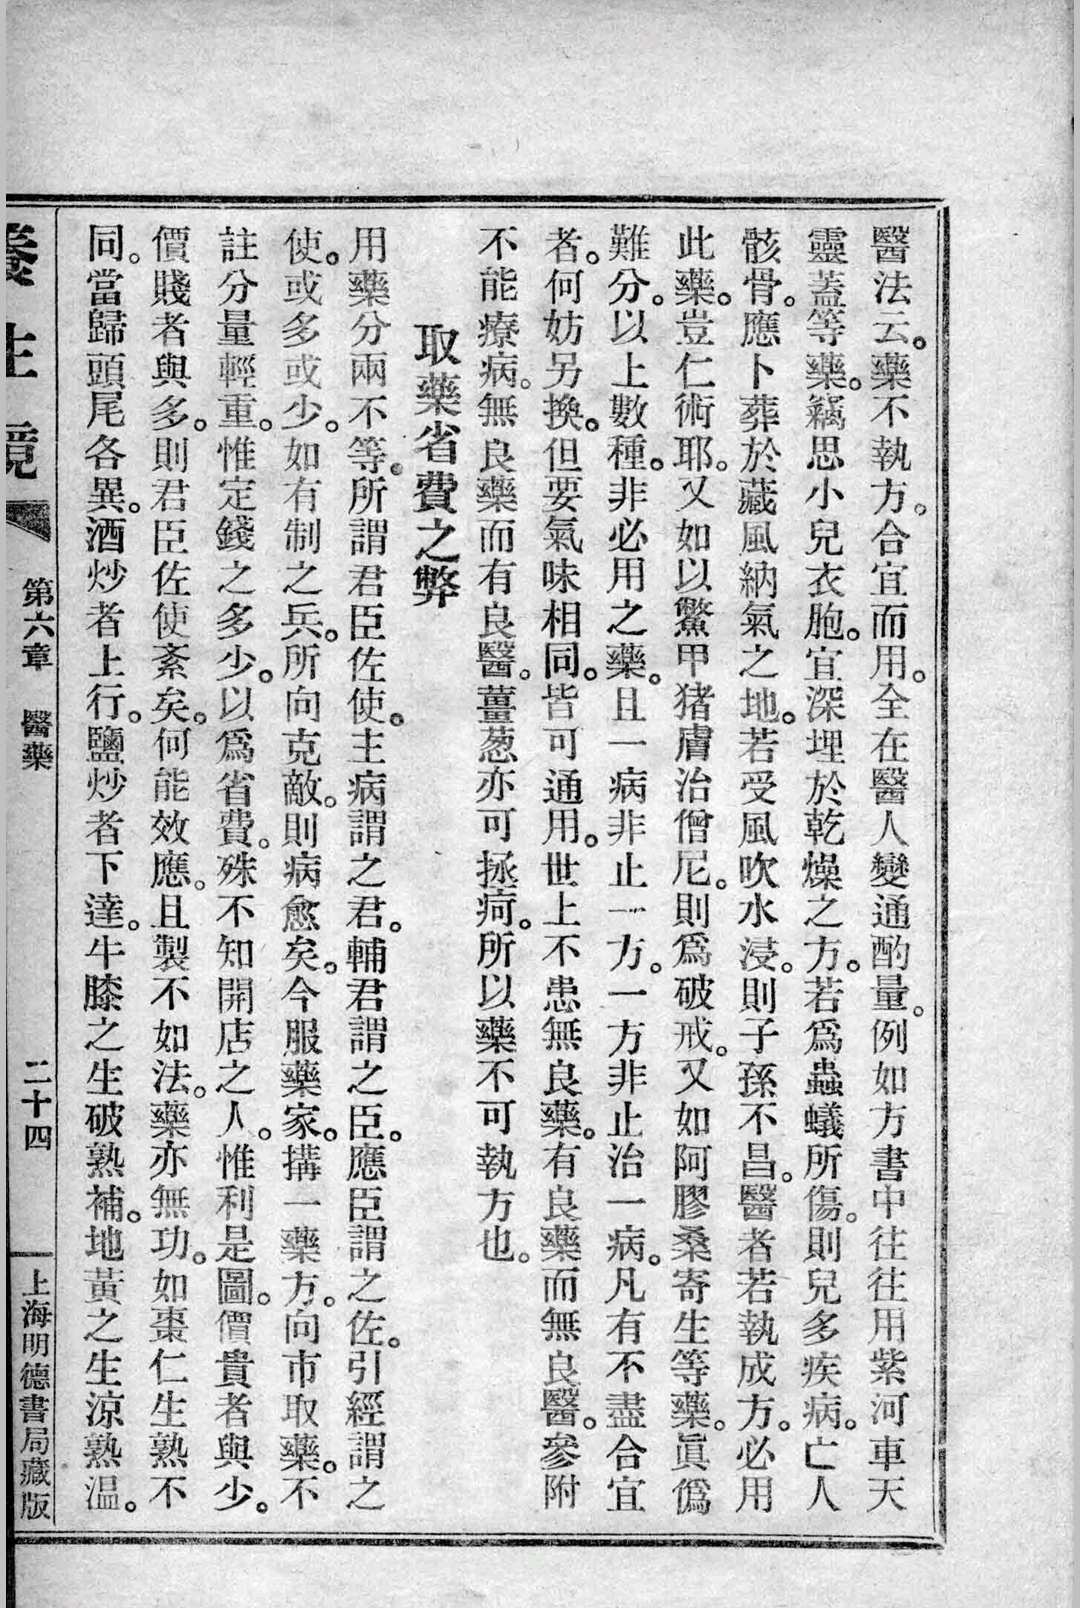 醫法云。藥不執方。合宜而用。全在醫人變通酌量。例如方書中往往用紫河車天
靈蓋等藥。竊思小兒衣胞。宜深埋於乾燥之方。若爲蟲蟻所傷。則兒多疾病。亡人
骸骨。應卜葬於藏風納氣之地。若受風吹水浸。則子孫不昌。醫者若執成方。必用
此藥。豈仁術耶。又如以鱉甲猪膚治僧尼。則爲破戒。又如阿膠桑寄生等藥。眞僞
難分。以上數種。非必用之藥。且一病非止一方。一方非止治一病。凡有不盡合宜
者。何妨另換。但要氣味相同。皆可通用。世上不患無良藥。有良藥而無良醫。參附
不能療病。無良藥而有良醫。薑葱亦可拯疴。所以藥不可執方也。
取藥省費之弊
用藥分兩不等。所謂君臣佐使。主病謂之君。輔君謂之臣。應臣謂之佐。引經謂之
使。或多或少。如有制之兵。所向克敵。則病愈矣。今服藥家。搆一藥方。向市取藥。不
註分量輕重。惟定錢之多少。以爲省費。殊不知開店之人。惟利是圖。價貴者與少。
價賤者與多。則君臣佐使紊矣。何能效應。且製不如法。藥亦無功。如棗仁生熟不
同。當歸頭尾各異。酒炒者上行。鹽炒者下達。牛膝之生破熟補。地黃之生涼熟溫。
養生鏡 第六章 醫藥 二十四 上海明德書局藏版